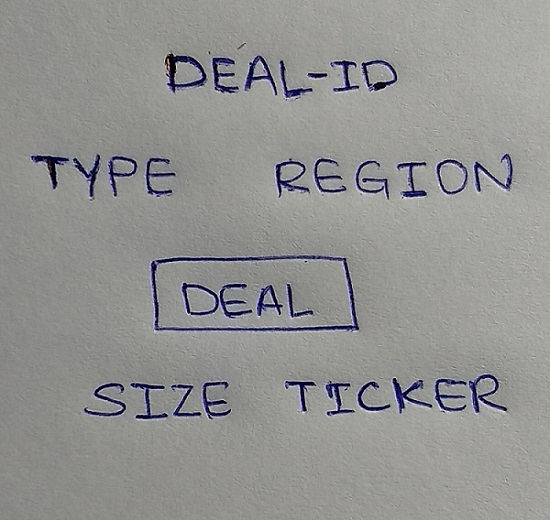 DEAL-ID
TYPE REGION
DEAL
SIZE TICKER